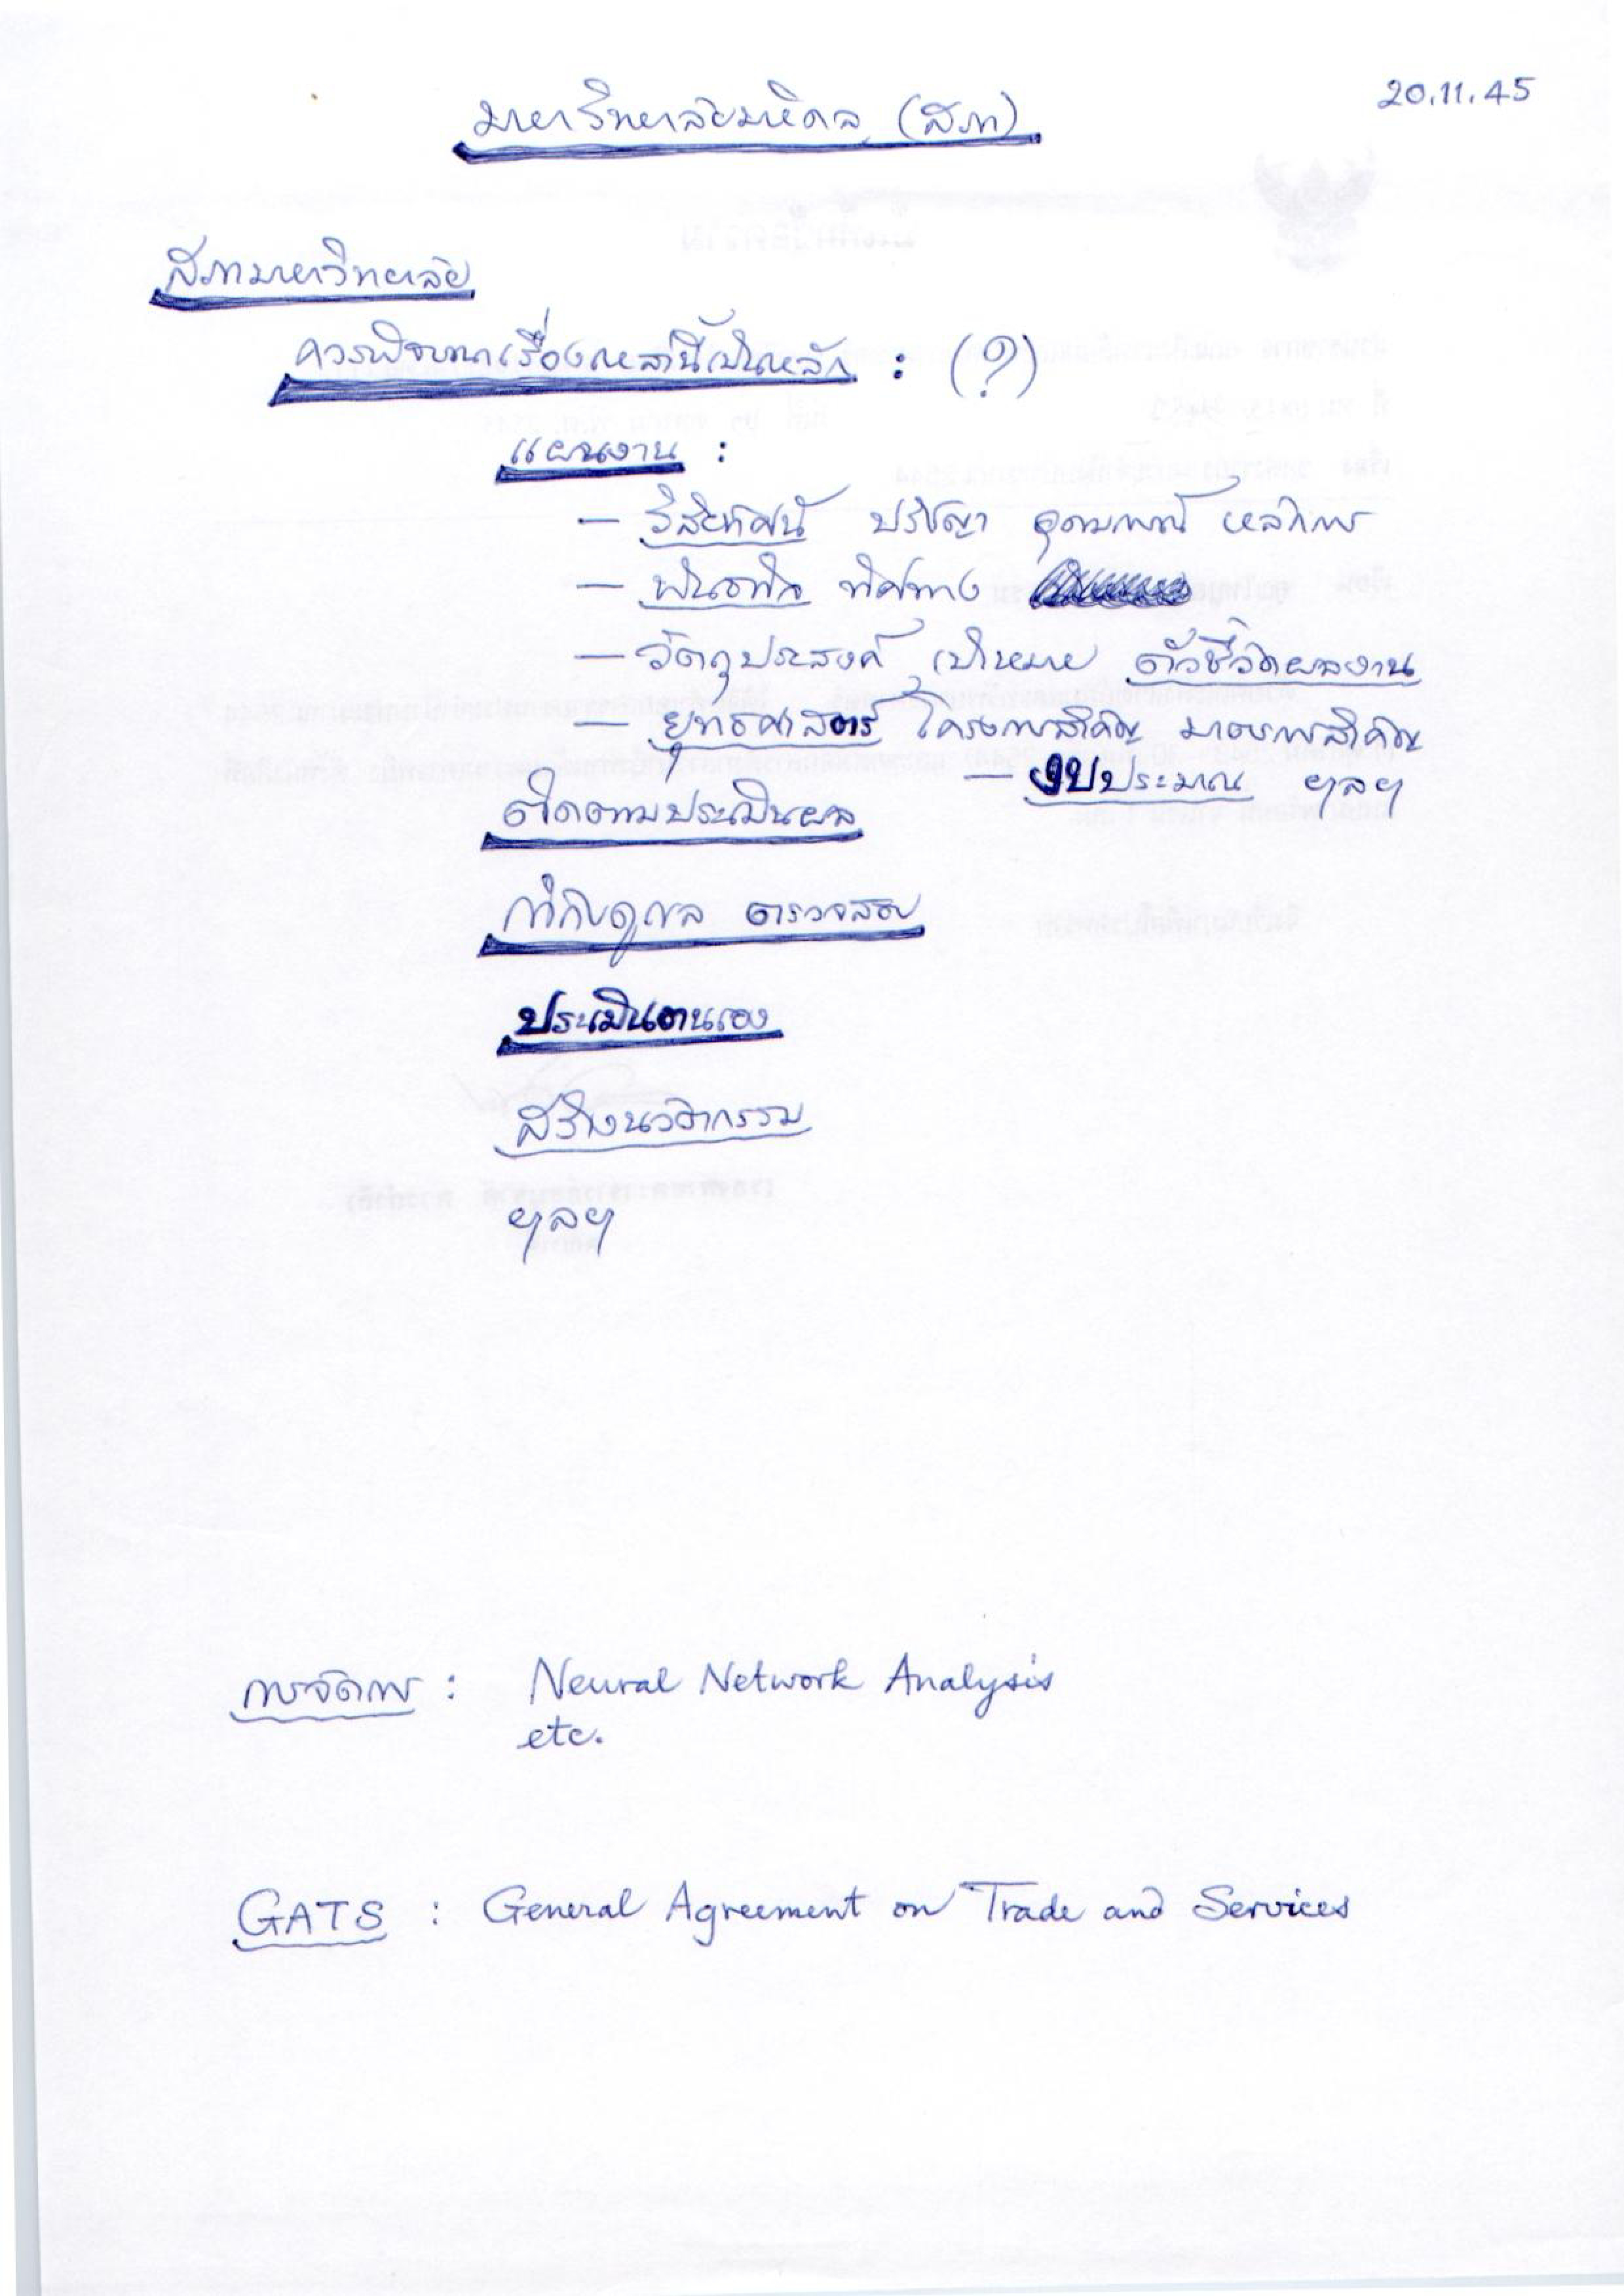 20.11.45
มหาวิทยาลัยมหิดล (สภา)
สภามหาวิทยาลัย
ควรพิจารณาเรื่องเหล่านี้เป็นหลัก : (?)
แผนงาน :
— วิสัยทัศน์ ปรัชญา อุดมการณ์ หลักการ
— พันธกิจ ทิศทาง
— วัตถุประสงค์ เป้าหมาย ตัวชี้วัดผลงาน
— ยุทธศาสตร์ โครงการสำคัญ มาตรการสำคัญ
— งบประมาณ ฯลฯ
ติดตามประเมินผล
กำกับดูแล ตรวจสอบ
ประเมินตนเอง
สร้างนวัตกรรม
ฯลฯ
การจัดการ : Neural Network Analysis
etc.
GATS : General Agreement on Trade and Services